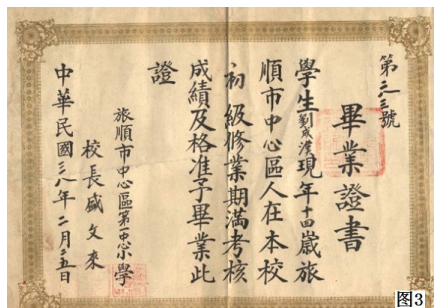 第三三號
畢業證書
學生劉成漢現年十四歲旅
順市中心區人在本校
初級修業期滿考核
成績及格准予畢業此
證
旅順市中心區第一中心小學
校長盛文來
中華民國三八年二月二五日
图3